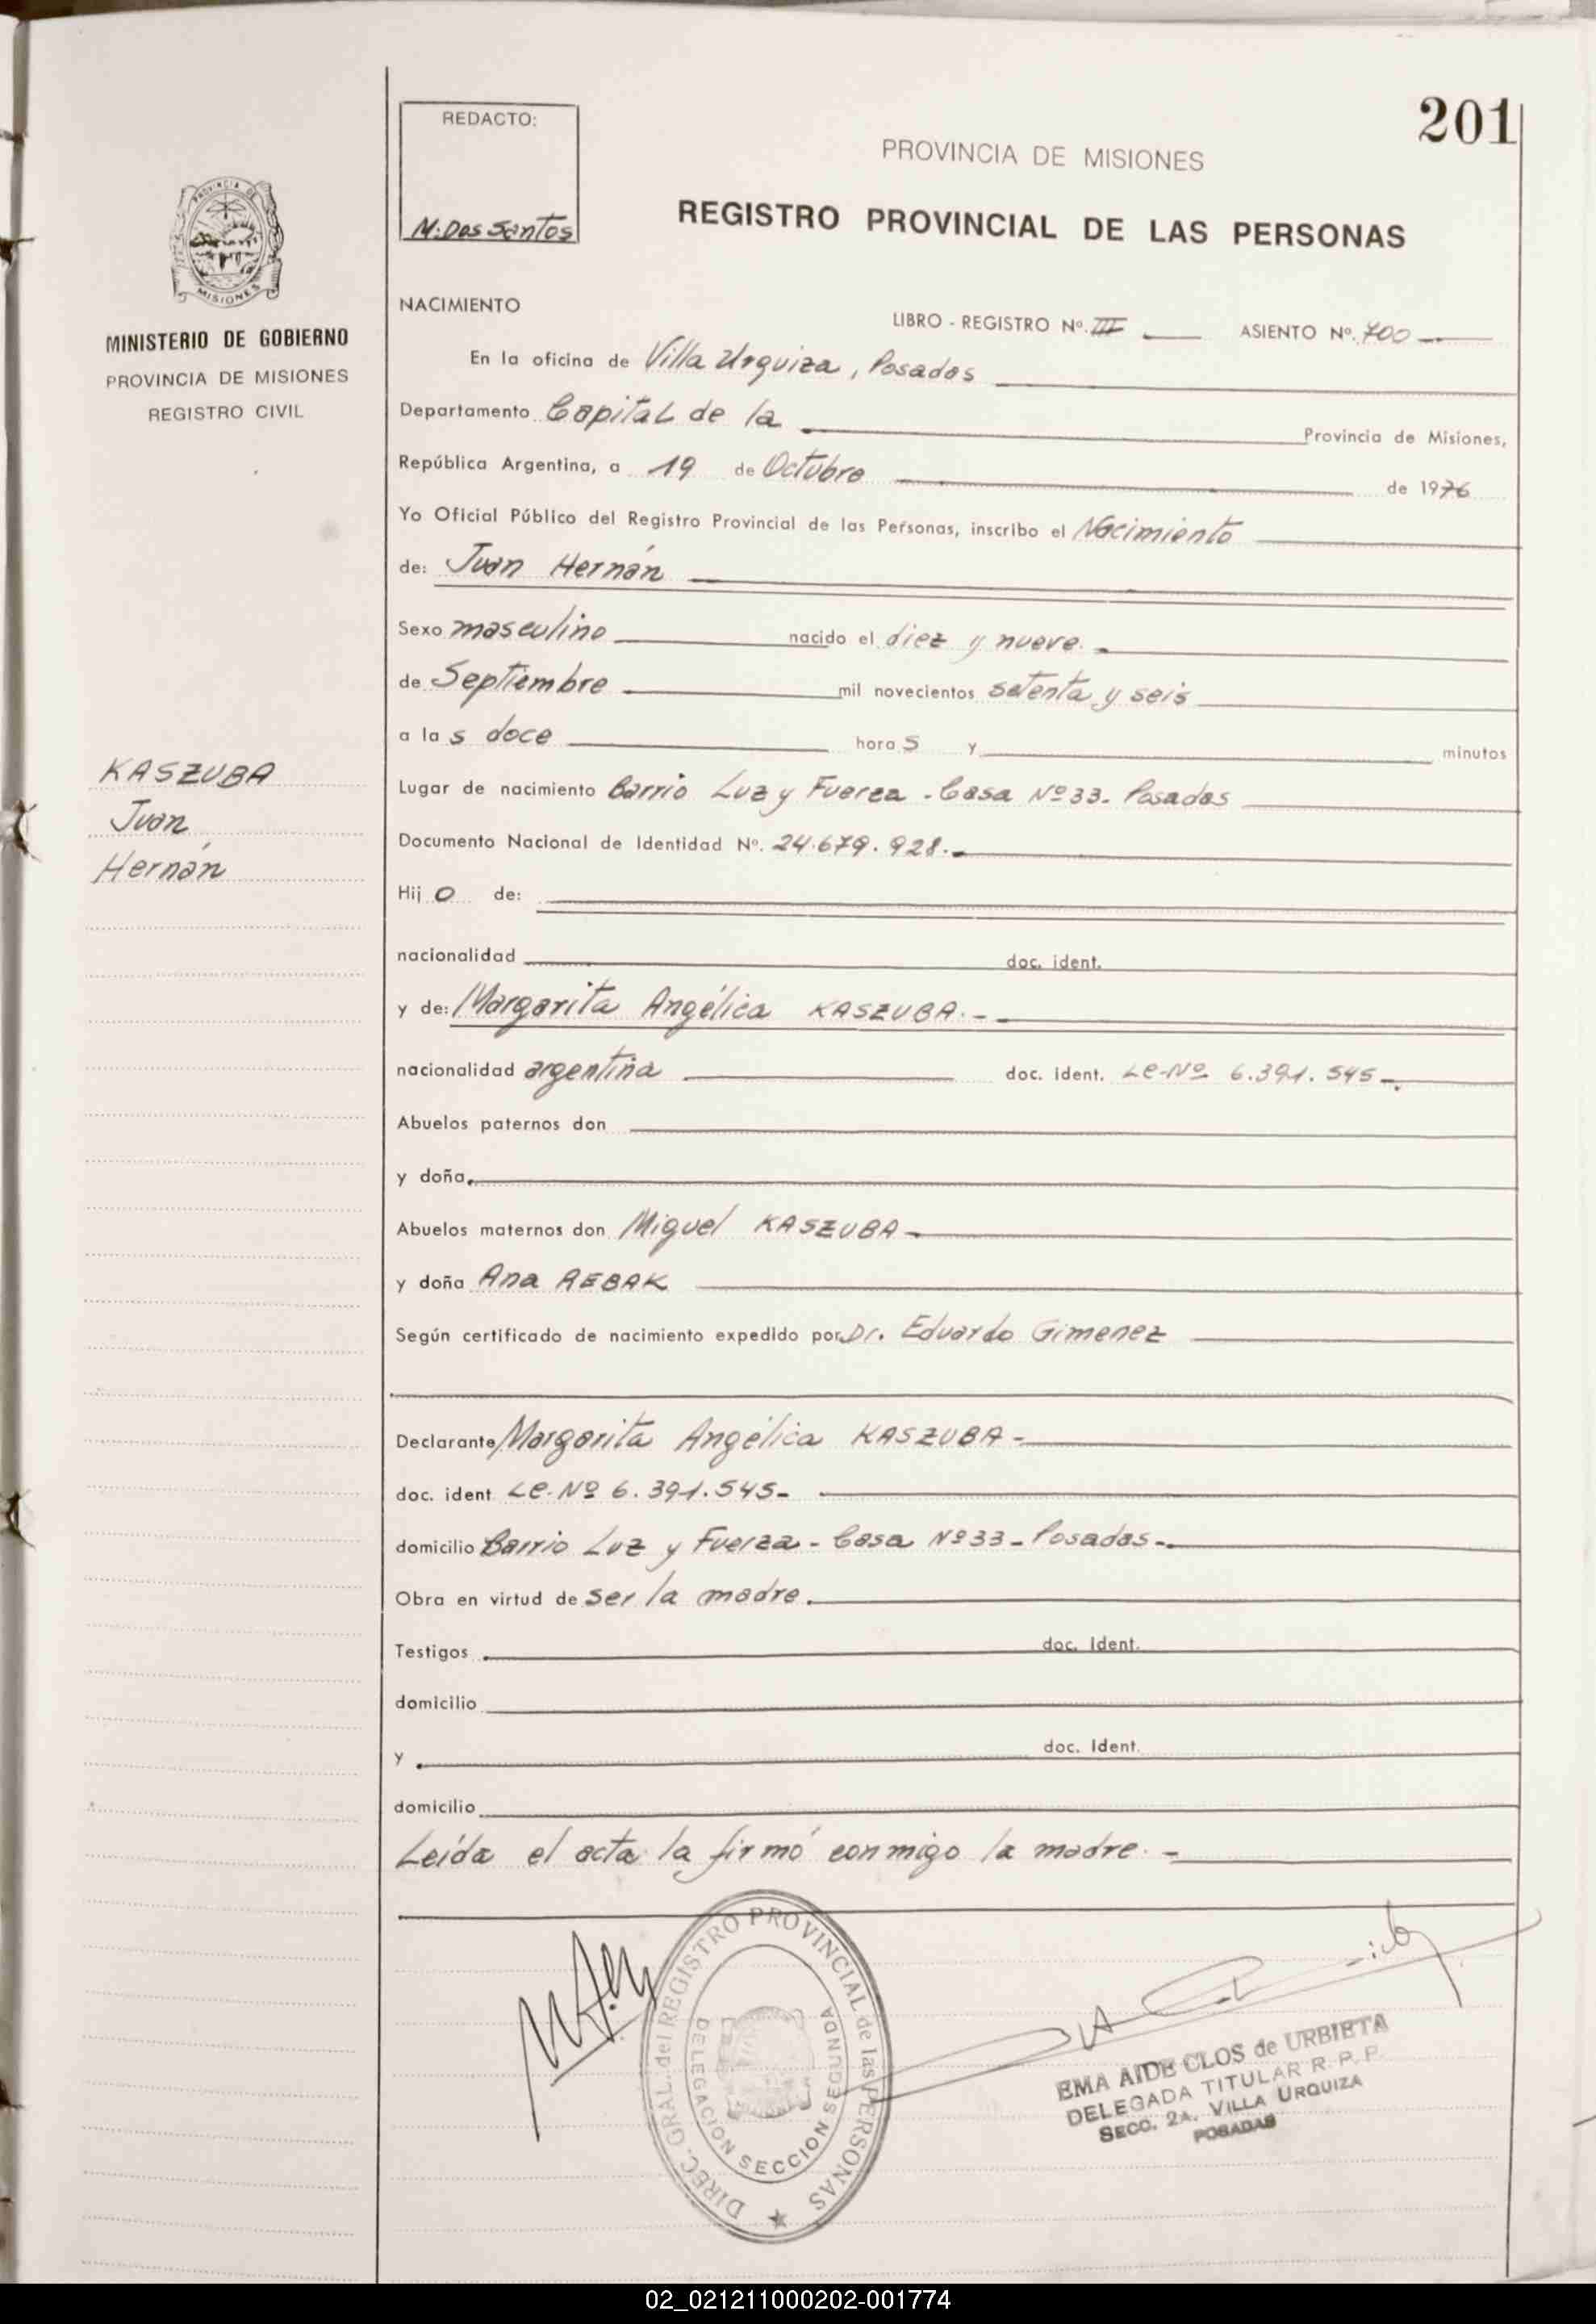 201
REDACTO:
M. Dos Santos
PROVINCIA DE MISIONES
REGISTRO PROVINCIAL DE LAS PERSONAS
PROVINCIA DE
MISIONES
MINISTERIO DE GOBIERNO
PROVINCIA DE MISIONES
REGISTRO CIVIL
KASZUBA
Juan
Hernán
NACIMIENTO
LIBRO - REGISTRO Nº. III ASIENTO Nº. 700
En la oficina de Villa Urquiza, Posadas
Departamento Capital de la Provincia de Misiones,
República Argentina, a 19 de Octubre de 1976
Yo Oficial Público del Registro Provincial de las Personas, inscribo el Nacimiento
de: Juan Hernán
Sexo masculino nacido el diez y nueve.
de Septiembre mil novecientos setenta y seis
a las doce horas y minutos
Lugar de nacimiento Barrio Luz y Fuerza - Casa Nº 33 - Posadas
Documento Nacional de Identidad Nº. 24.679.928.-
Hijo de:
nacionalidad doc. ident.
y de: Margarita Angélica KASZUBA.-
nacionalidad argentina doc. ident. LC-Nº 6.391.545-
Abuelos paternos don
y doña
Abuelos maternos don Miguel KASZUBA-
y doña Ana REBAK
Según certificado de nacimiento expedido por Dr. Eduardo Gimenez
Declarante Margarita Angélica KASZUBA-
doc. ident LC-Nº 6.391.545-
domicilio Barrio Luz y Fuerza - Casa Nº 33 - Posadas-
Obra en virtud de ser la madre.
Testigos doc. Ident.
domicilio
y doc. Ident.
domicilio
Leída el acta la firmó conmigo la madre.-
DIREC. GRAL. del REGISTRO PROVINCIAL de las PERSONAS
DELEGACION SECCION SEGUNDA
EMA AIDE CLOS de URBIETA
DELEGADA TITULAR R. P. P.
SECC. 2A. VILLA URQUIZA
POSADAS
02_021211000202-001774